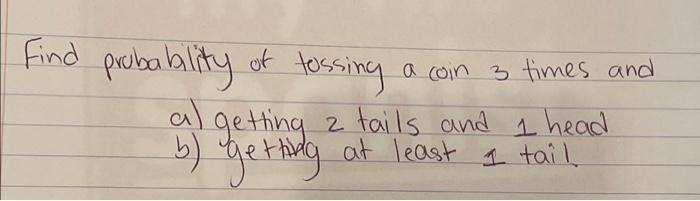 Find probability of tossing a coin 3 times and
a) getting 2 tails and 1 head
b) getting at least 1 tail